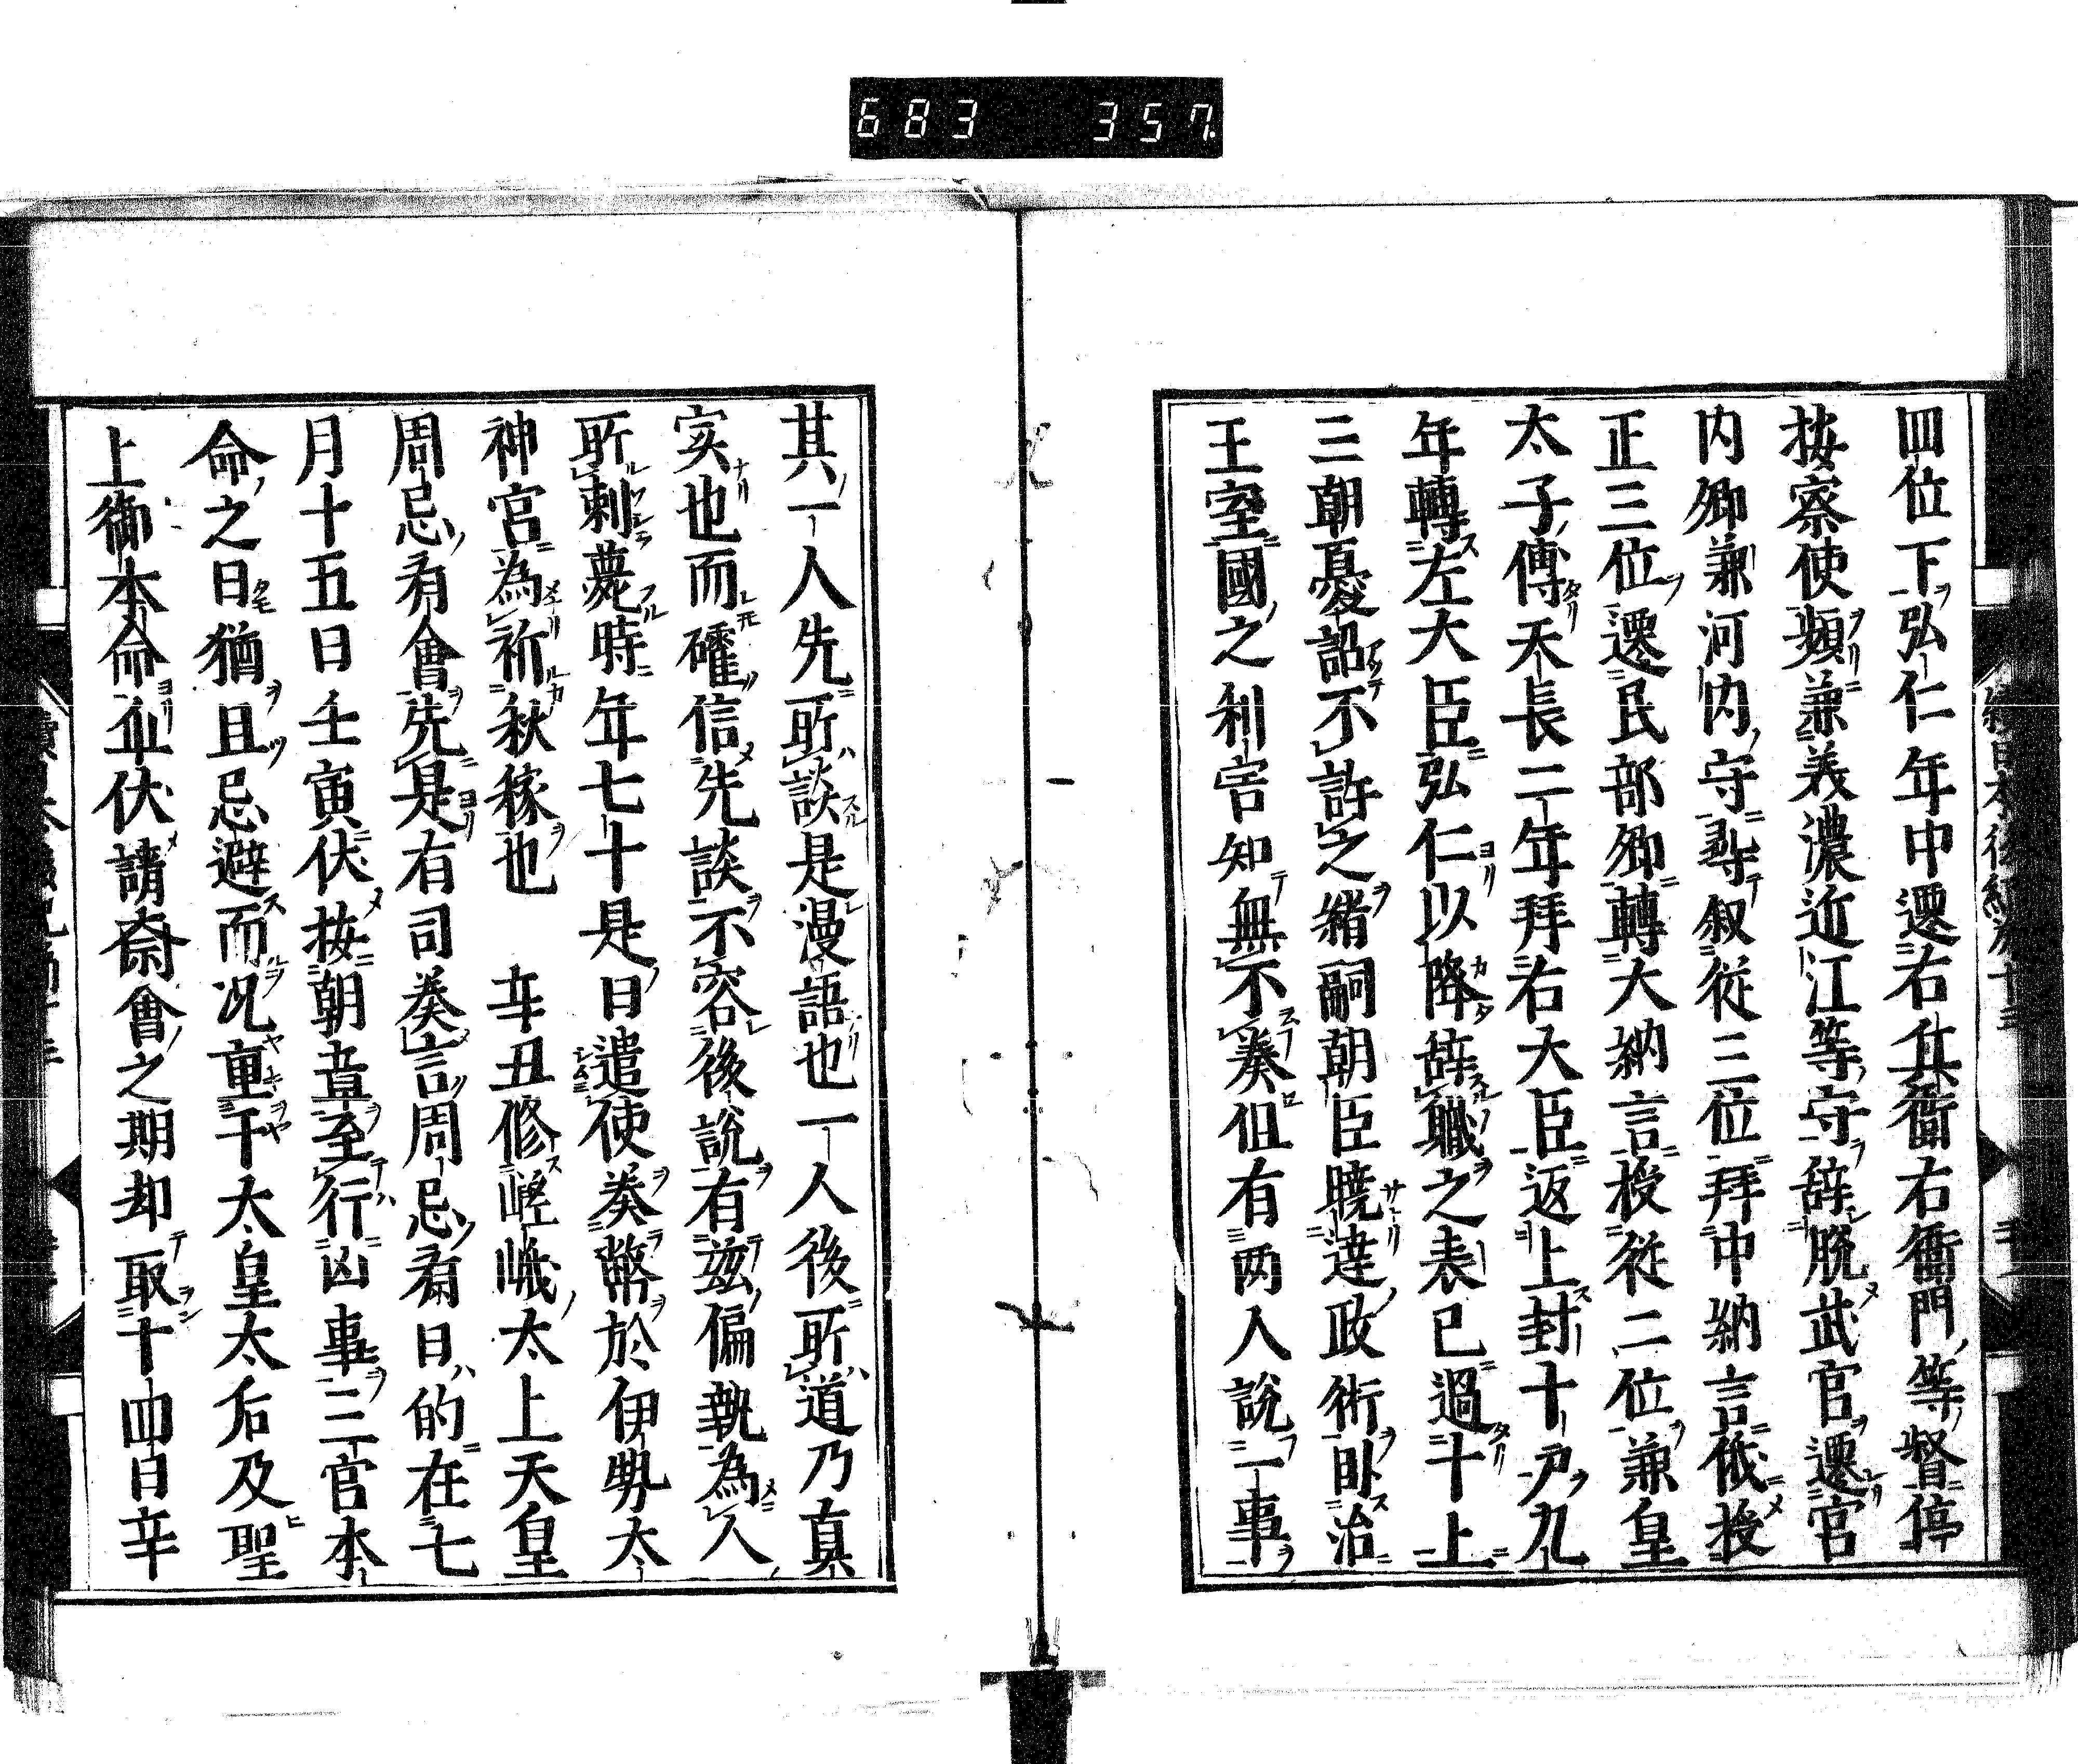 683 357
四位下弘仁年中遷右兵衞右衞門等督停
按察使頻兼美濃近江等守辞脱武官遷官
内卿兼河内守尋叙従三位拜中納言俄授
正三位遷民部卿轉大納言授従二位兼皇
太子傅天長二年拜右大臣返上封十戸九
年轉左大臣弘仁以降辞職之表已過十上
三朝憂詔不許之緒嗣朝臣曉達政術臥治
王室國之利害知無不奏但有两人説一事
其一人先所談是漫語也一人後所道乃真
実也而確信先談不容後説有茲偏執為人
所刺薨時年七十是日遣使奏幣於伊勢太
神宮為祈秋稼也 辛丑修嵯峨太上天皇
周忌斎會先是有司奏言周忌斎日的在七
月十五日壬寅伏按朝章至行凶事三官本
命之日猶且忌避而况重干太皇太后及聖
上御本命並伏請斎會之期却取十四日辛